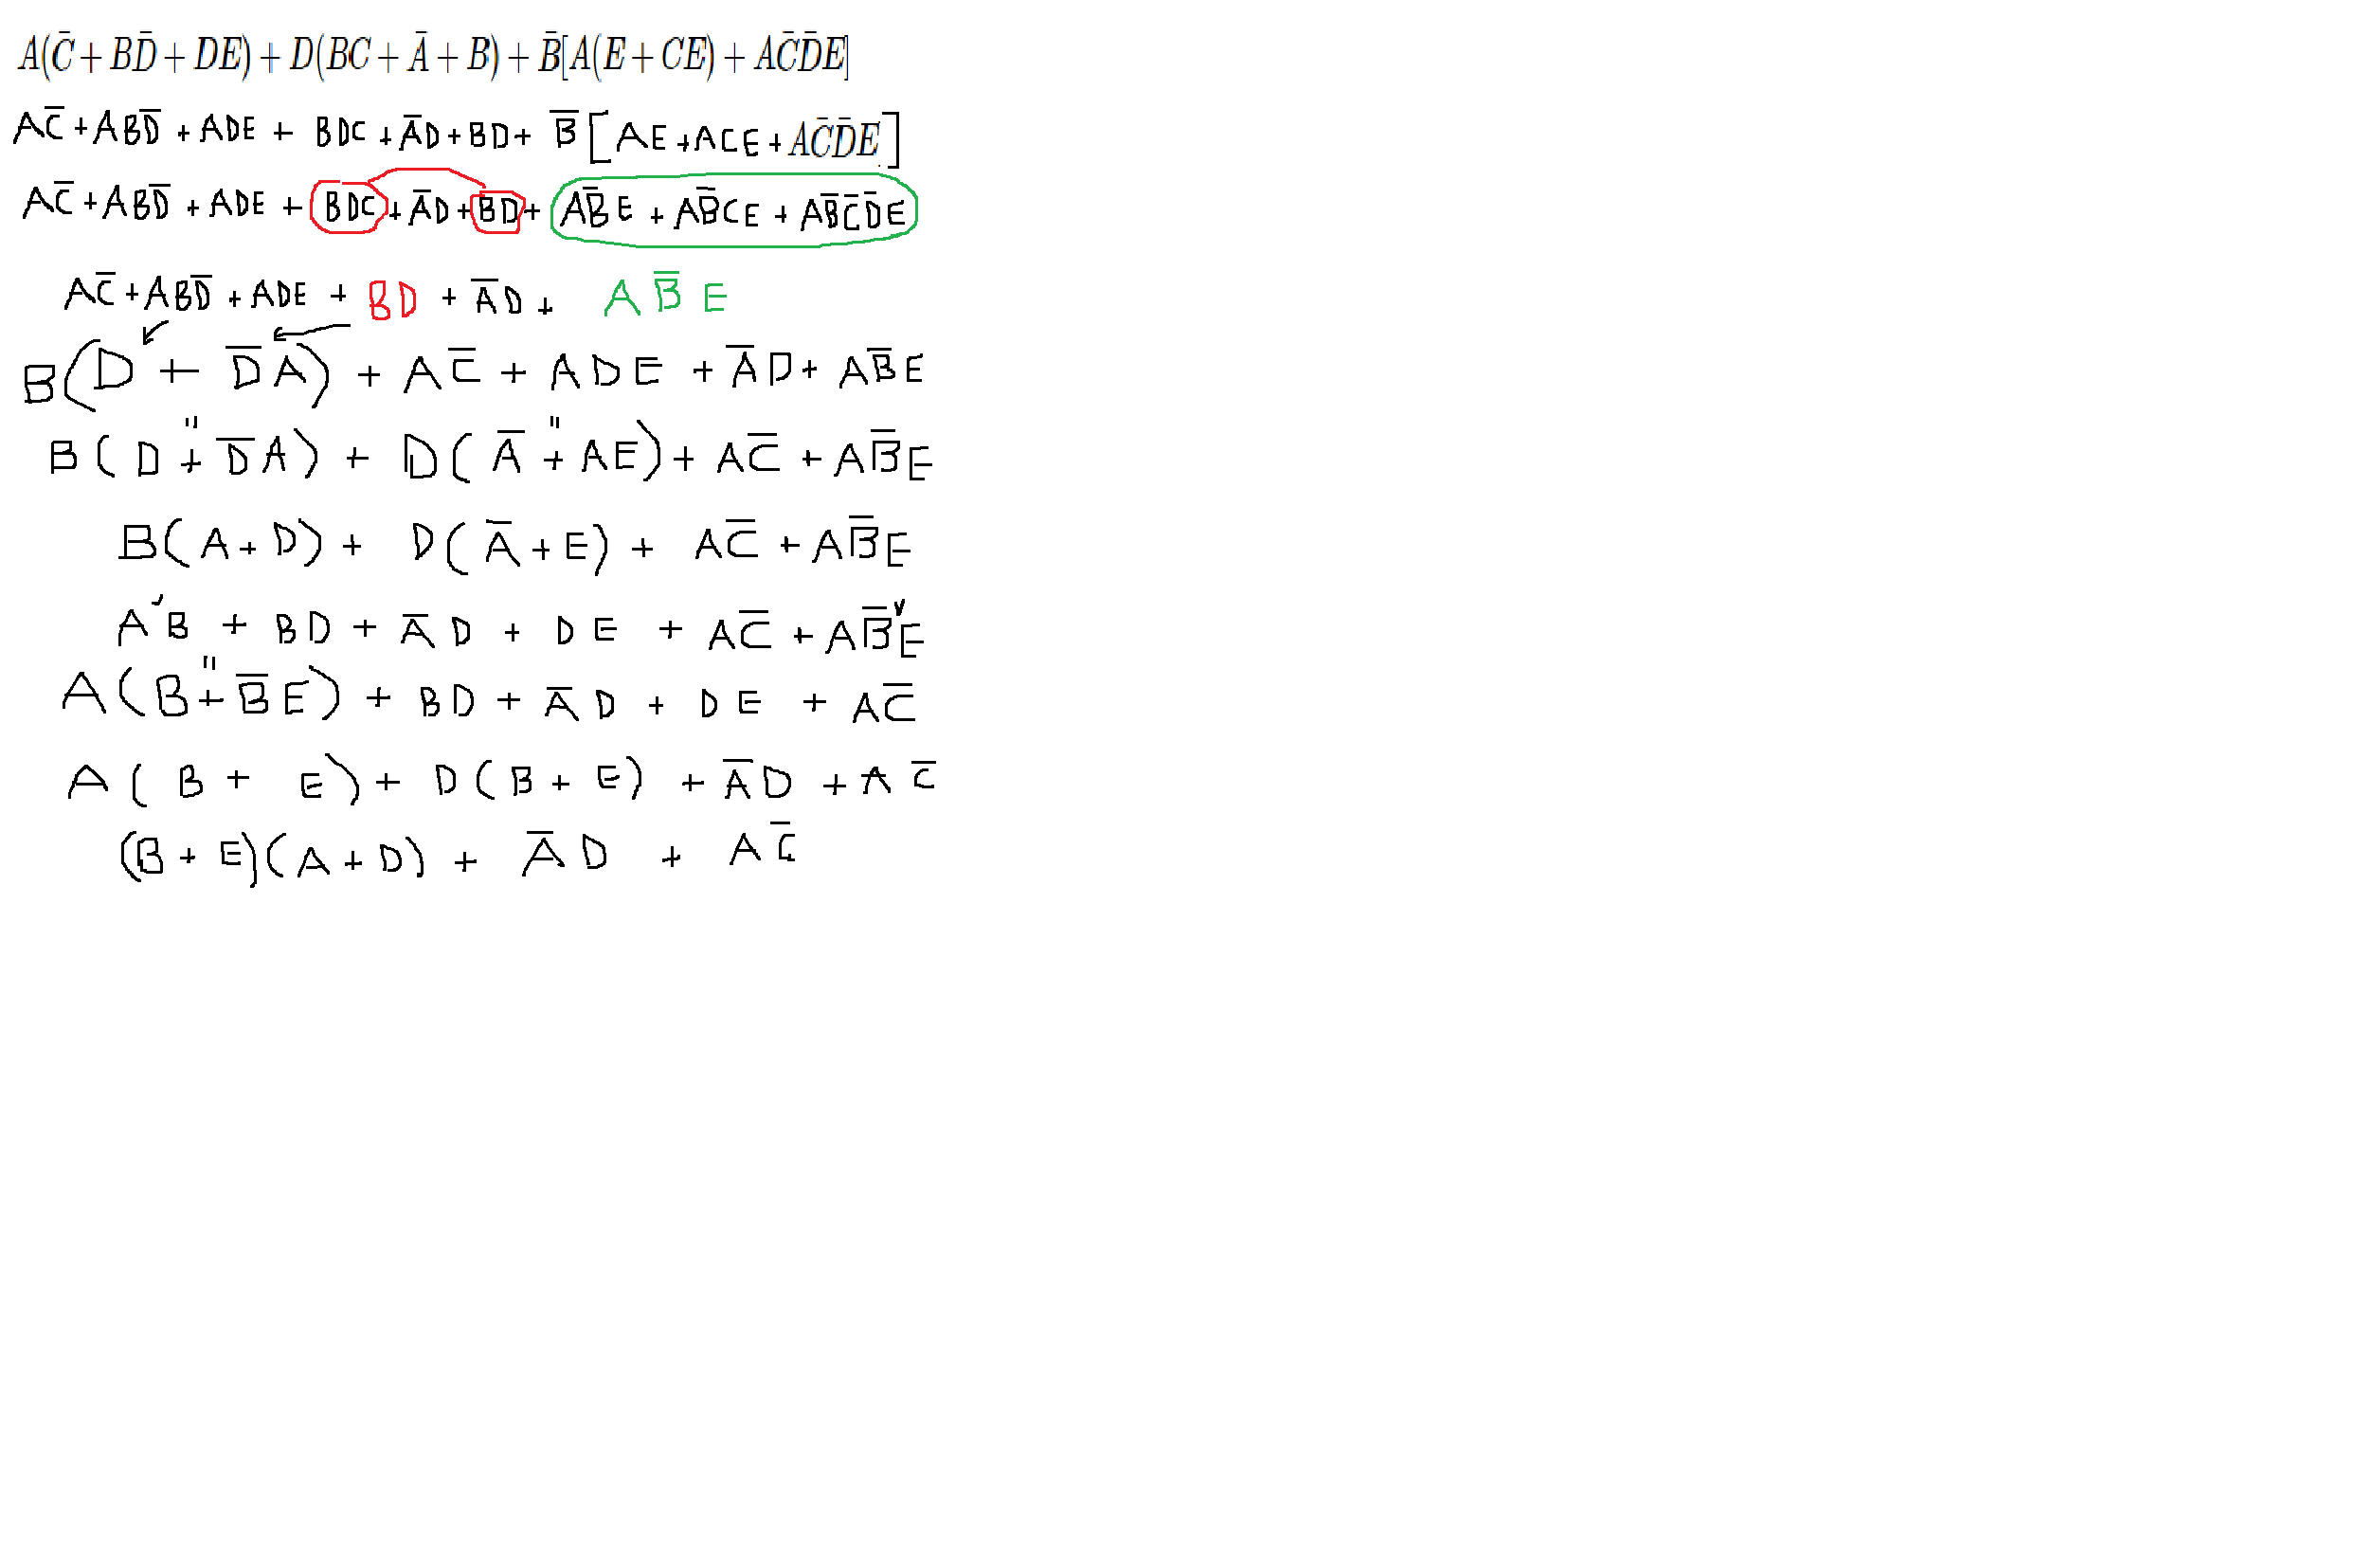 A(C̄ + BD̄ + DE) + D(BC + Ā + B) + B̄[A(E + CE) + AC̄D̄E]
AC̄ + ABD̄ + ADE + BDC + ĀD + BD + B̄[AE + ACE + AC̄D̄E]
AC̄ + ABD̄ + ADE + BDC + ĀD + BD + AB̄E + AB̄CE + AB̄C̄D̄E
AC̄ + ABD̄ + ADE + BD + ĀD + AB̄E
B(D + D̄A) + AC̄ + ADE + ĀD + AB̄E
B(D + D̄A) + D(Ā + AE) + AC̄ + AB̄E
B(A + D) + D(Ā + E) + AC̄ + AB̄E
AB + BD + ĀD + DE + AC̄ + AB̄E
A(B + B̄E) + BD + ĀD + DE + AC̄
A(B + E) + D(B + E) + ĀD + AC̄
(B + E)(A + D) + ĀD + AC̄